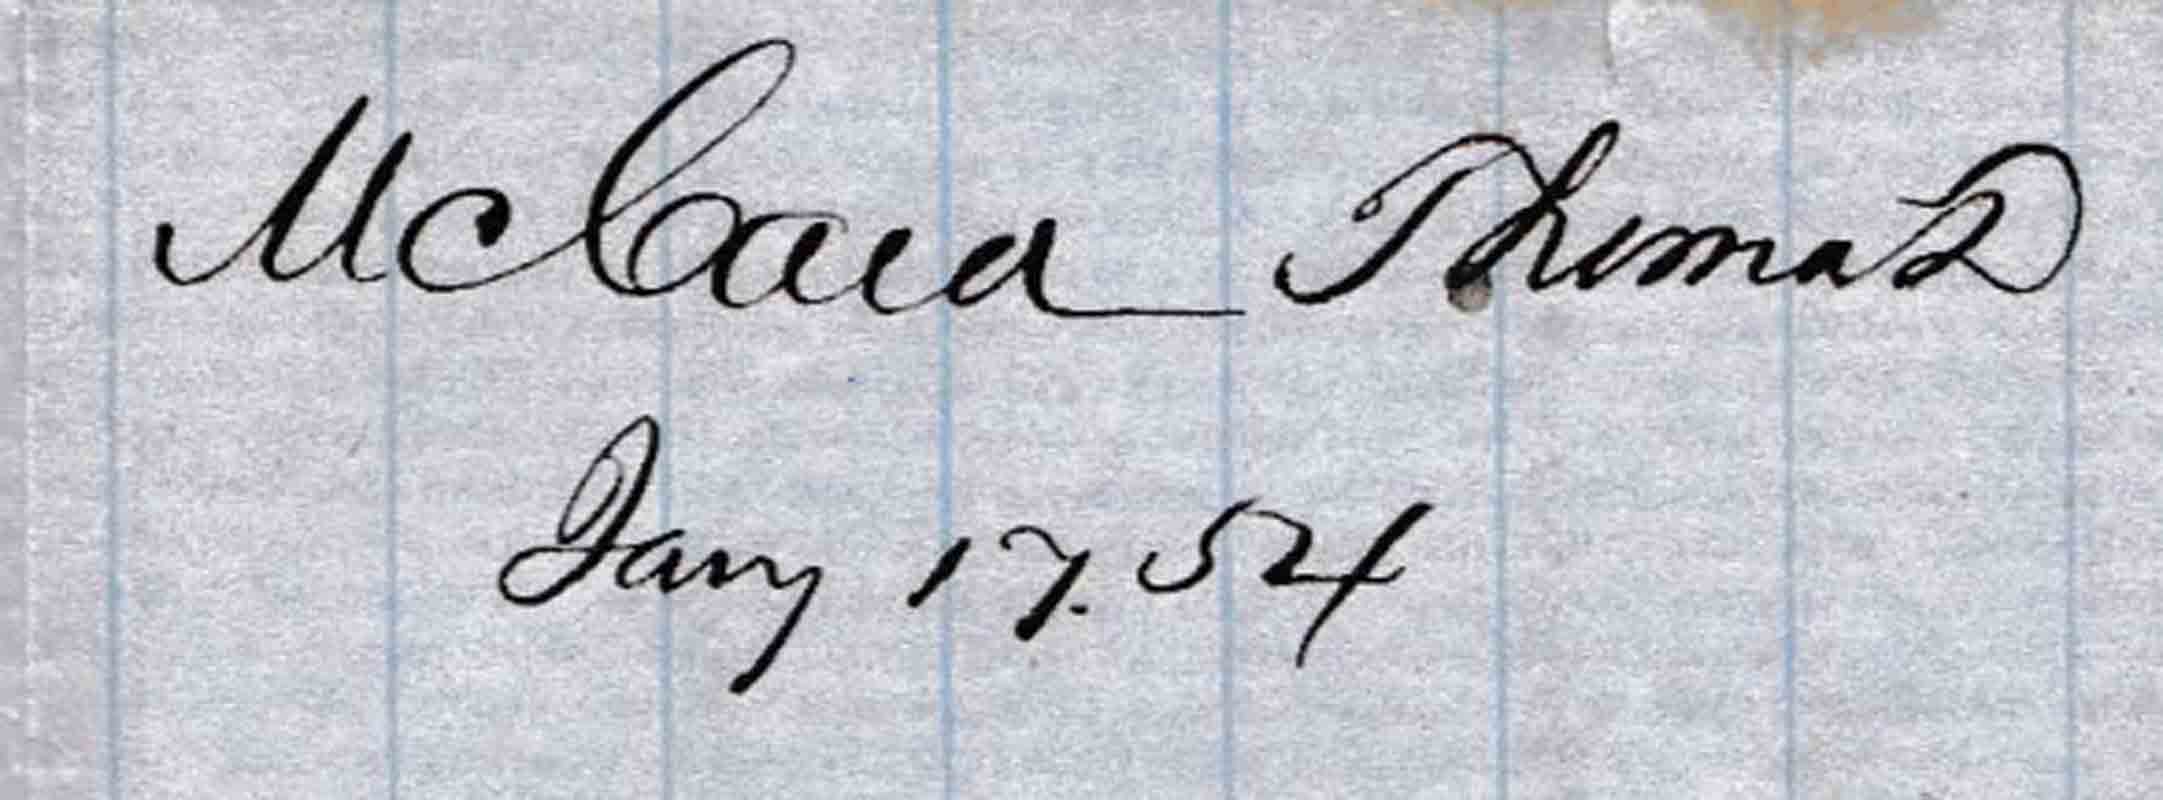 McCaua Thomas
Jany 17. 54